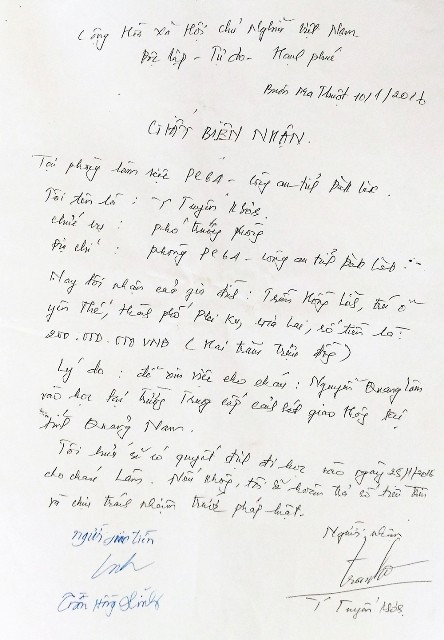 Cộng Hòa xã Hội chủ Nghĩa Việt Nam
Độc lập - Tự do - Hạnh phúc
Buôn Ma Thuột 10/1/2016
GIẤY BIÊN NHẬN.
Tại phòng làm việc PC61 - Công an tỉnh Đắk Lắk.
Tôi tên là : Y Tuyên Ksơr.
chức vụ : phó trưởng phòng
Địa chỉ : phòng PC61 - Công an tỉnh Đắk Lắk.
Nay tôi nhận của gia đình : Trần Hồng, trú ở
yên Thế, Thành phố Plei Ku, Gia Lai, số tiền là:
200.000.000 VNĐ ( Hai trăm triệu đồng )
Lý do : để xin việc cho cháu : Nguyễn Quang Lâm
vào học tại Trường Trung cấp cảnh sát giao thông tại
tỉnh Quảng Nam.
Tôi hứa sẽ có quyết định đi học vào ngày 25/1/2016
cho cháu Lâm. Nếu không, tôi sẽ hoàn trả số tiền trên
và chịu trách nhiệm trước pháp luật.
người giao tiền
Người nhận
Trần Hồng
Y Tuyên Ksơr